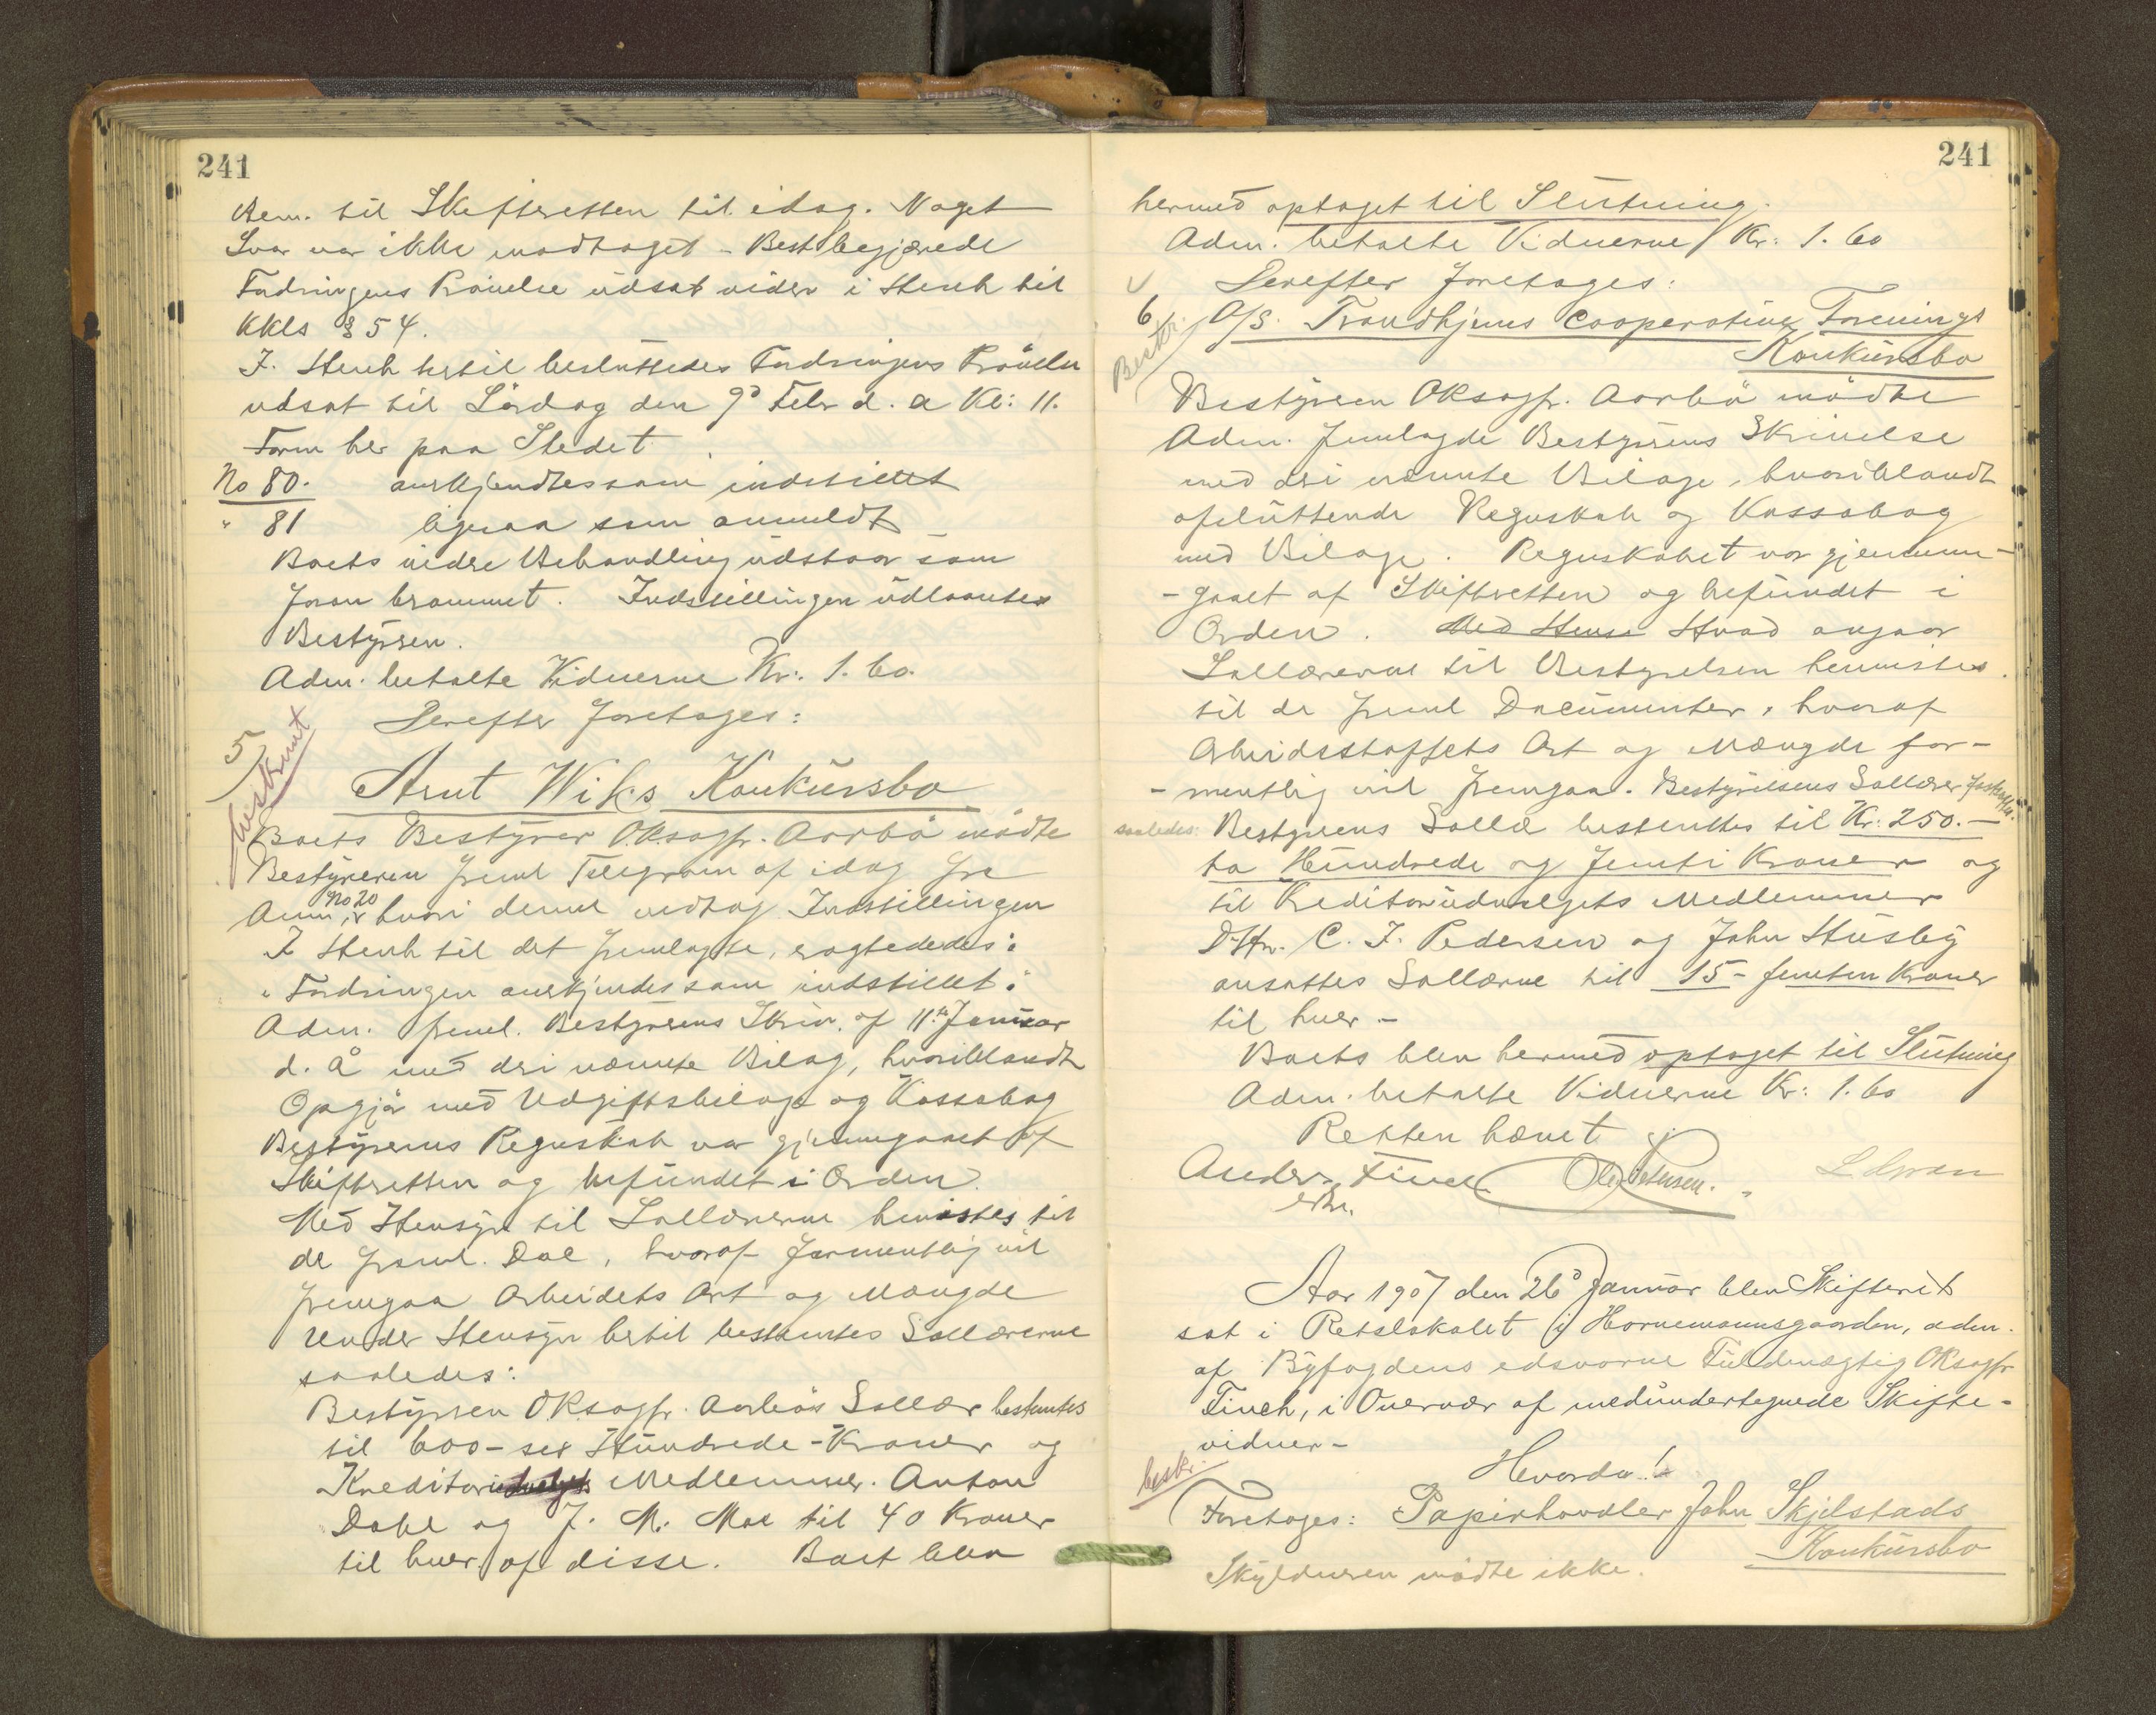 241
Bem. til Skifteretten til idag. Noget
Svar var ikke modtaget - Best. begjærede
Fordringens Prøvelse udsat videre i Henh til
KKls § 54.
I. Henh hertil besluttedes Fordringens Prøvelse
udsat til Lørdag den 9d Febr d. a Kl: 11.
Form her paa Stedet.
No 80. anerkjendtes som indstillet
" 81 ligesaa som anmeldt
Boets videre Behandling udstaar som
foran berammet. Indstillingen udlaantes
Bestyreren.
Adm. betalte Vidnerne Kr: 1.60.
Derefter foretages:
5
beskrevet
Arnt Wiks Konkursbo
Boets Bestyrer O.R.sagfr. Aarbø mødte
Bestyreren freml Telegram af idag fra
Anm No 20, hvori denne vedtog Indstillingen
I Henh til det fremlagte, eragtededes:
"Fordringen anerkjendes som indstillet."
Adm. freml. Bestyrerens Skriv. af 11te Januar
d. Å med deri nævnte Bilag, hvoriblandt
Opgjør med Udgiftsbilage og Kassabog
Bestyrerens Regnskab var gjennemgaaet af
Skifteretten og befundet i Orden.
Med Hensyn til Sallærerne henvistes til
de freml. Dok, hvoraf formentlig vil
fremgaa Arbeidets Art og Mængde
Under Hensyn hertil bestemtes Sallærerne
saaledes:
Bestyreren O.R.sagfr. Aarbøs Sallær bestemtes
til 600 - sex Hundrede - Kroner og
Kreditorudvalgets Medlemmer. Anton
Dahl og J. M. Moe til 40 Kroner
til hver af disse. Boet blev
241
hermed optaget til Slutning.
Adm. betalte Vidnerne Kr: 1.60
Derefter foretages:
6 A/S. Trondhjems Cooperative Forenings
Beskr.
Konkursbo
Bestyreren ORsagfr. Aarbø mødte
Adm. fremlagde Bestyrerens Skrivelse
med deri nævnte Bilage, hvoriblandt
afsluttende Regnskab og Kassabog
med Bilage. Regnskabet var gjennem-
-gaaet af Skifteretten og befundet i
Orden. Med Hensi Hvad angaar
Sallærerne til Bestyrelsen henvistes
til de freml Documenter, hvoraf
Arbeidsstoffets Art og Mængde for-
-mentlig vil fremgaa. Bestyrelsens Sallærer fastsattes
saaledes: Bestyrerens Sallær bestemtes til Kr: 250. -
to Hundrede og femti Kroner og
til Kreditorudvalgets Medlemmer
D'Hrr. C. F. Pedersen og John Husby
ansattes Sallærerne til 15 - femten Kroner
til hver -
Boets blev hermed optaget til Slutning
Adm. betalte Vidnerne Kr: 1.60
Retten hævet
Anders Finch Ole Petersen.
Aar 1907 den 26d Januar blev Skifteret
sat i Retslokalet i Hornemannsgaarden, adm.
af Byfogdens edsvorne Fuldmægtig ORsagfr
Finch, i Overvær af medundertegnede Skifte-
vidner -
Hvorda!
beskr.
Foretages: Papirhandler John Skjelstads
Konkursbo
Skyldneren mødte ikke.